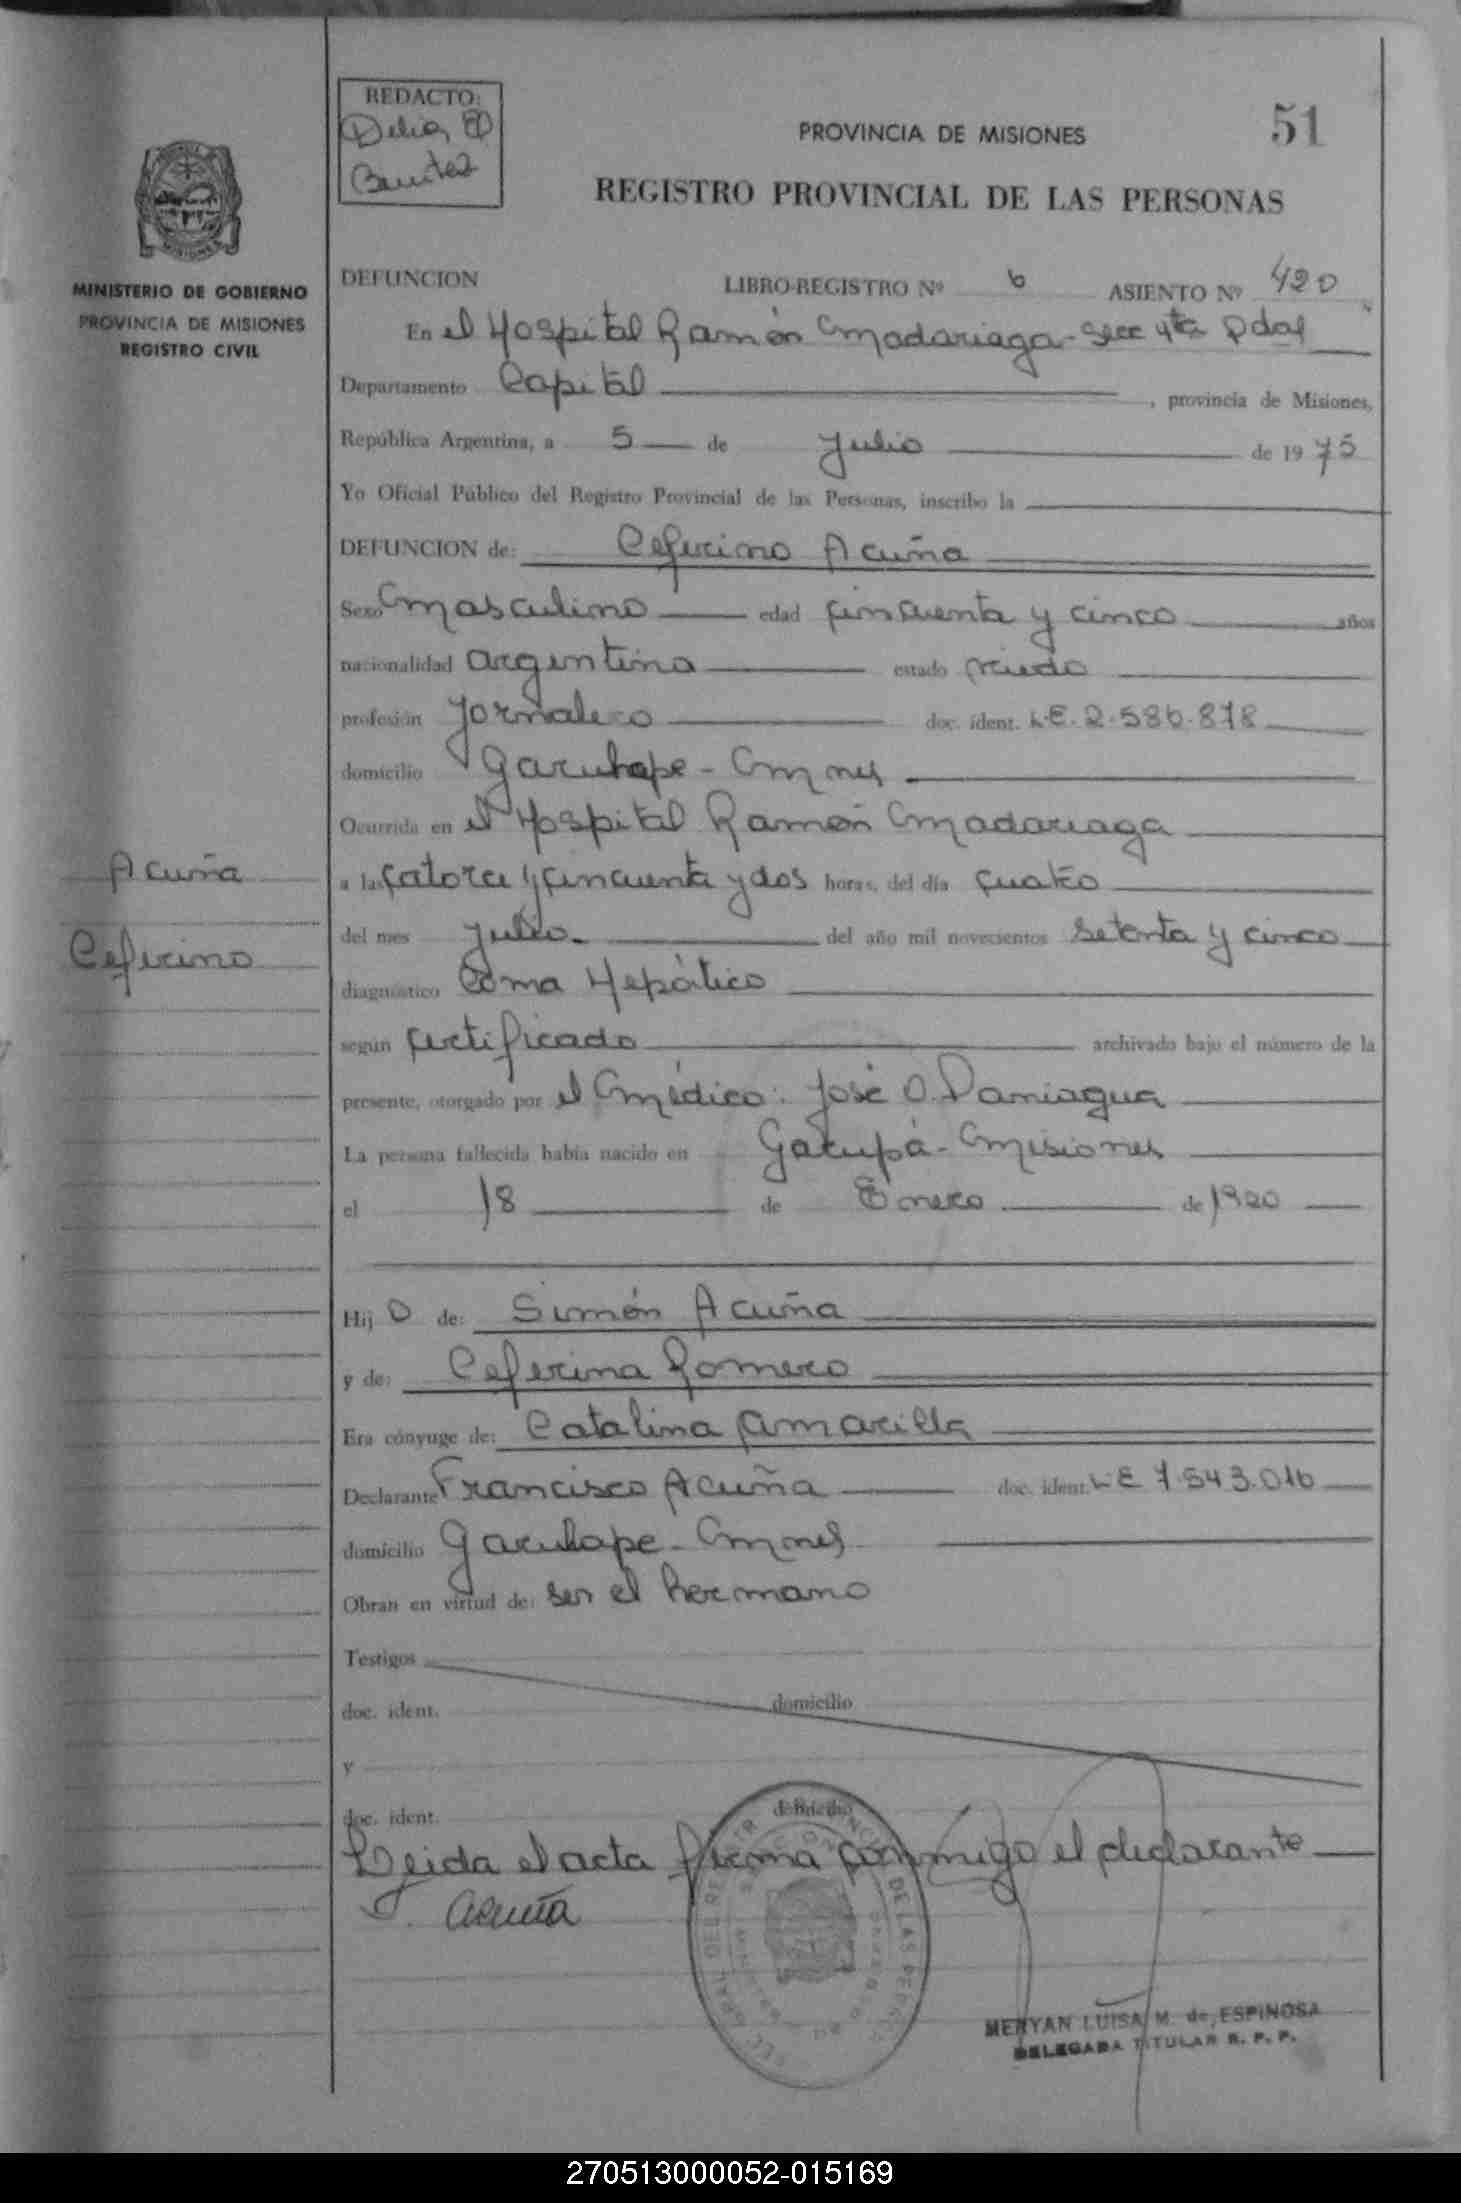 REDACTO:
Delia
Benitez
PROVINCIA DE MISIONES
51
REGISTRO PROVINCIAL DE LAS PERSONAS
MINISTERIO DE GOBIERNO
PROVINCIA DE MISIONES
REGISTRO CIVIL
DEFUNCION LIBRO-REGISTRO Nº 6 ASIENTO Nº 420
En el Hospital Ramón Madariaga - Secc 4ta Pdas
Departamento Capital, provincia de Misiones,
República Argentina, a 5 de Julio de 1975
Yo Oficial Público del Registro Provincial de las Personas, inscribo la
DEFUNCION de: Ceferino Acuña
Sexo Masculino edad cincuenta y cinco años
nacionalidad argentina estado viudo
profesión Jornalero doc. ident. L.E. 2.586.878
domicilio Garuhape - Mnes
Ocurrida en el Hospital Ramón Madariaga
a las catorce y cincuenta y dos horas, del día cuatro
del mes Julio.- del año mil novecientos setenta y cinco
diagnóstico Coma Hepático
según certificado archivado bajo el número de la
presente, otorgado por el Médico: José O. Paniagua
La persona fallecida había nacido en Garupá - Misiones
el 18 de Enero de 1920
Acuña
Ceferino
Hijo de: Simón Acuña
y de: Ceferina Romero
Era cónyuge de: Catalina Amarilla
Declarante Francisco Acuña doc. ident. L.E 7.543.016
domicilio Garuhape - Mnes
Obran en virtud de: ser el hermano
Testigos
doc. ident. domicilio
y
doc. ident. domicilio
Leida el acta firma conmigo el declarante
Acuña
MERYAN LUISA M. de ESPINOSA
DELEGADA TITULAR R. P. P.
270513000052-015169